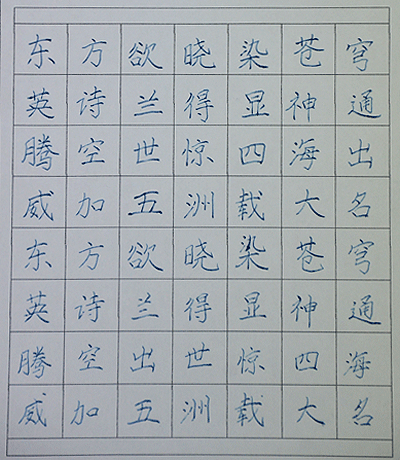 东方欲晓染苍穹
英诗兰得显神通
腾空世惊四海出
威加五洲载大名
东方欲晓染苍穹
英诗兰得显神通
腾空出世惊四海
威加五洲载大名